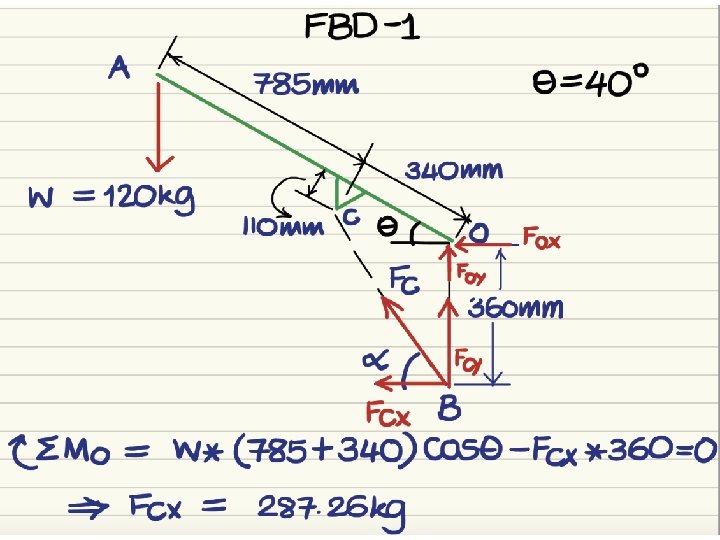 FBD-1
A
785mm
θ=40°
340mm
W = 120kg
110mm
C
θ
O
Fox
Fc
Foy
360mm
α
Fcy
Fcx
B
ΣMo = W*(785+340)Cosθ-Fcx*360=0
⇒ Fcx = 287.26kg